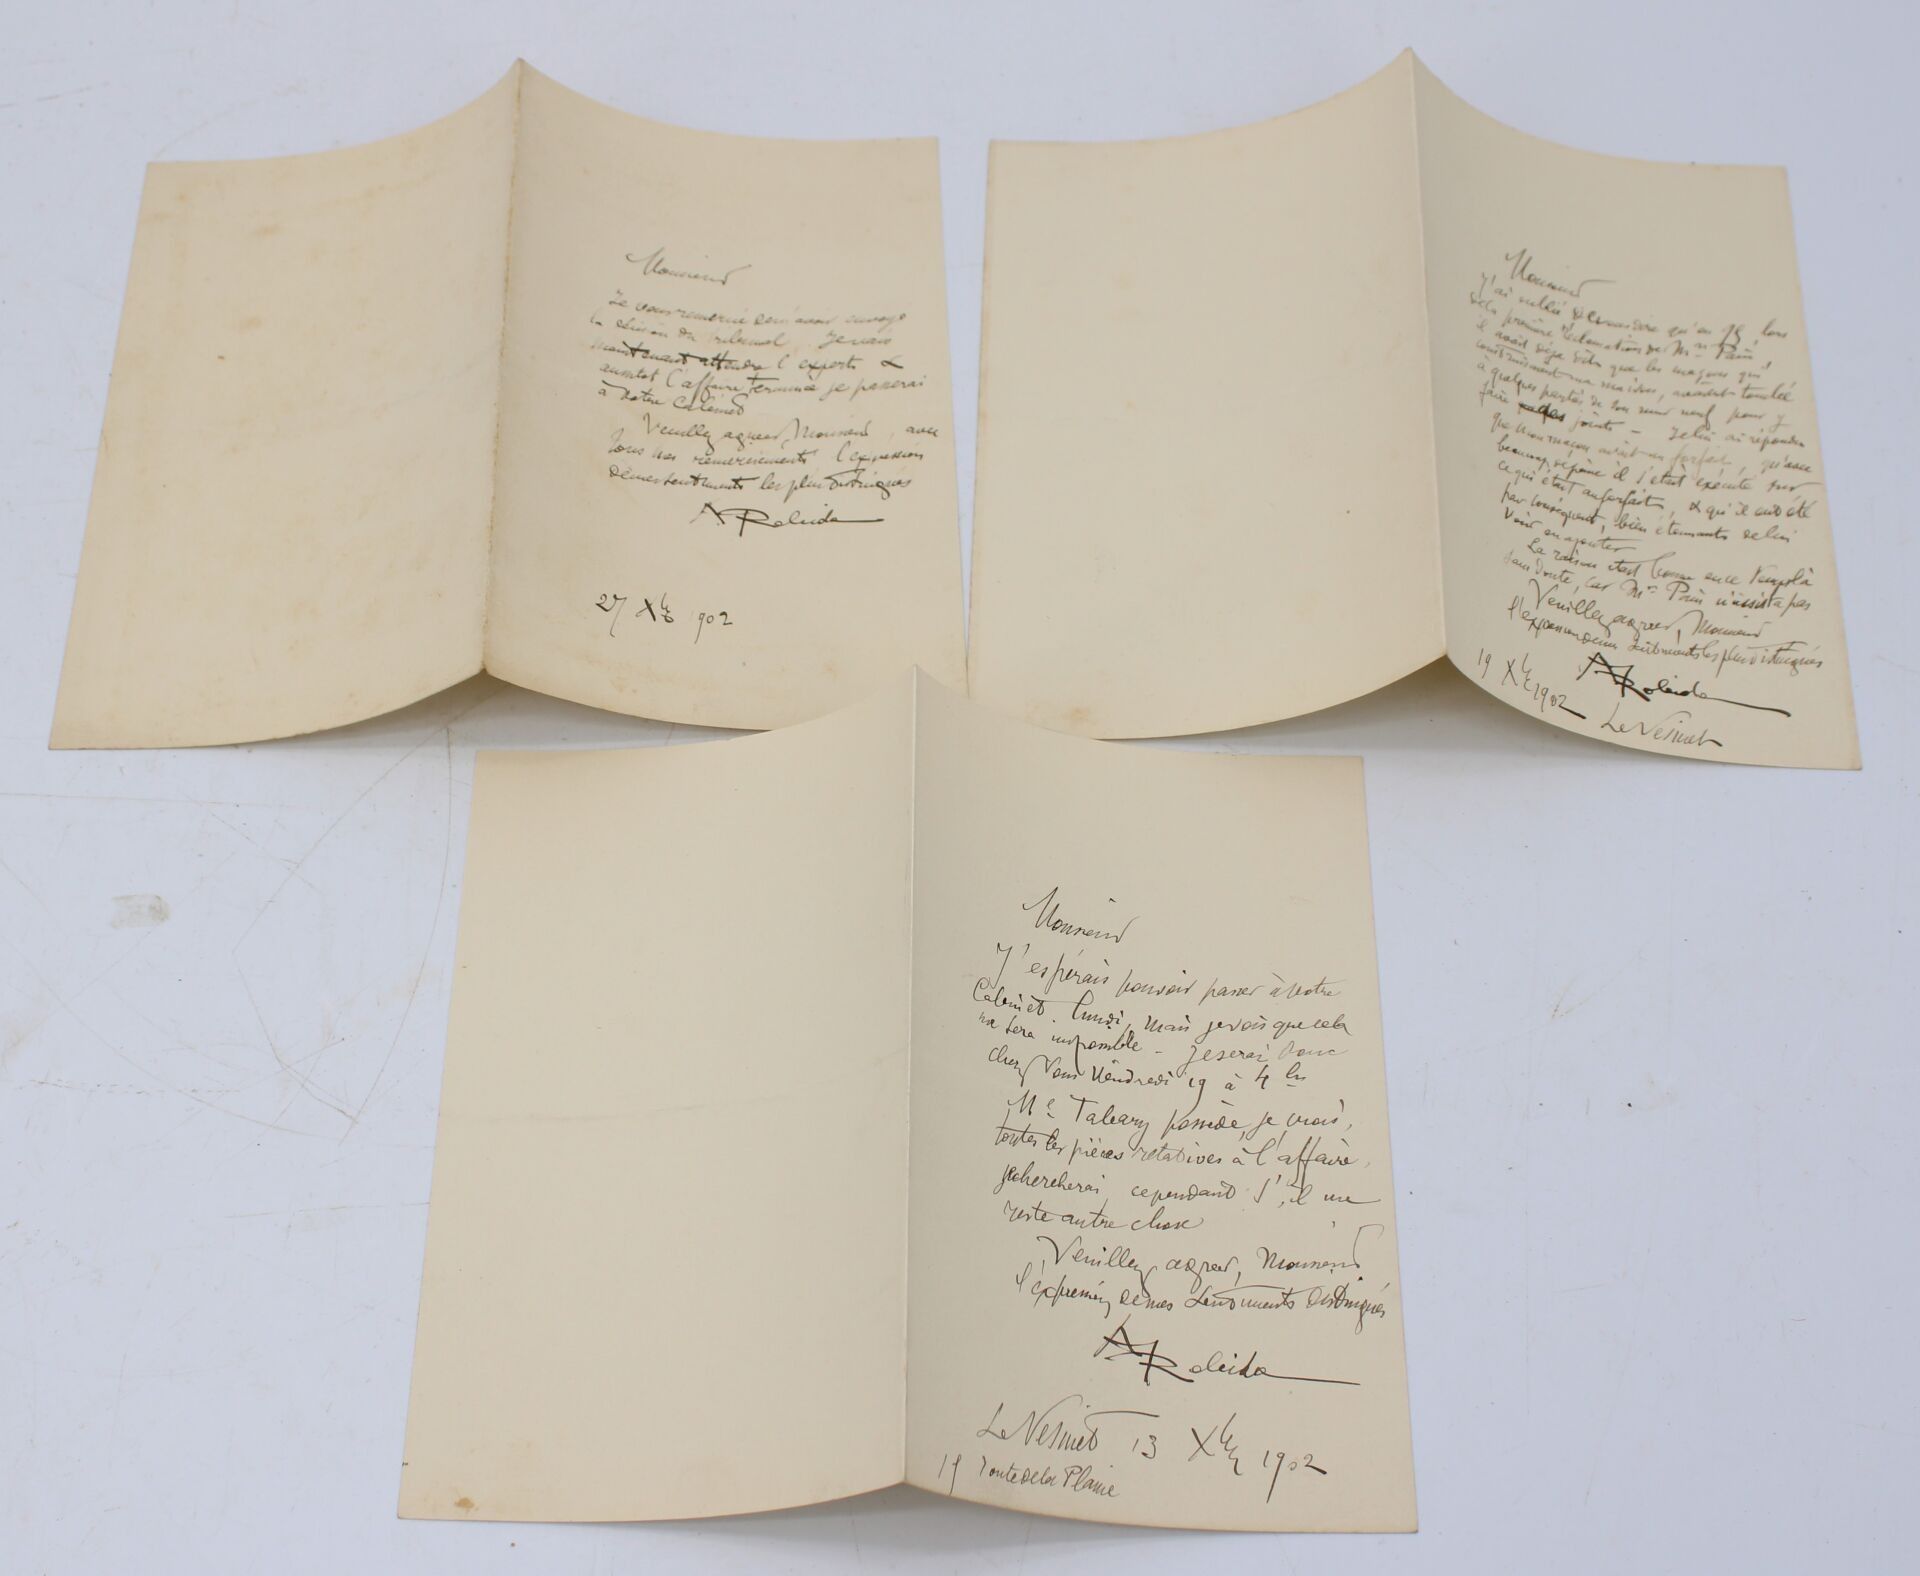 Monsieur
Je vous remercie de m'avoir envoyé
la décision du tribunal. Je vais
maintenant attendre l'expert &
aussitôt l'affaire terminée je passerai
à votre Cabinet
Veuillez agréer, Monsieur, avec
tous mes remerciements l'expression
de mes sentiments les plus distingués
A Robida
27 Xbre 1902
Monsieur
J'ai oublié de vous dire qu'en 98, lors
de la première réclamation de Mr Pain,
il avait déjà dit que les maçons qui
construisirent ma maison, avaient touché
à quelques parties de son mur neuf pour y
faire des joints - Je lui ai répondu
que mon maçon avait un forfait, qu'avec
beaucoup de peine il s'était exécuté sur
ce qui était au forfait, & qu'il eut été
par conséquent, bien étonnant de lui
voir en ajouter
La raison était bonne en ce temps là
sans doute, car Mr Pain n'insista pas
Veuillez agréer, Monsieur
l'expression de mes sentiments les plus distingués
A Robida
19 Xbre 1902
Le Vésinet
Monsieur
J'espérais pouvoir passer à votre
Cabinet lundi, mais je vois que cela
me sera impossible - Je serai donc
chez vous Vendredi 19 à 4 hes
Me Tabary possède, je crois,
toutes les pièces relatives à l'affaire,
je chercherai cependant s'il me
reste autre chose
Veuillez agréer, Monsieur
l'expression de mes sentiments distingués
A Robida
Le Vésinet 13 Xbre 1902
15 route de la Plaine